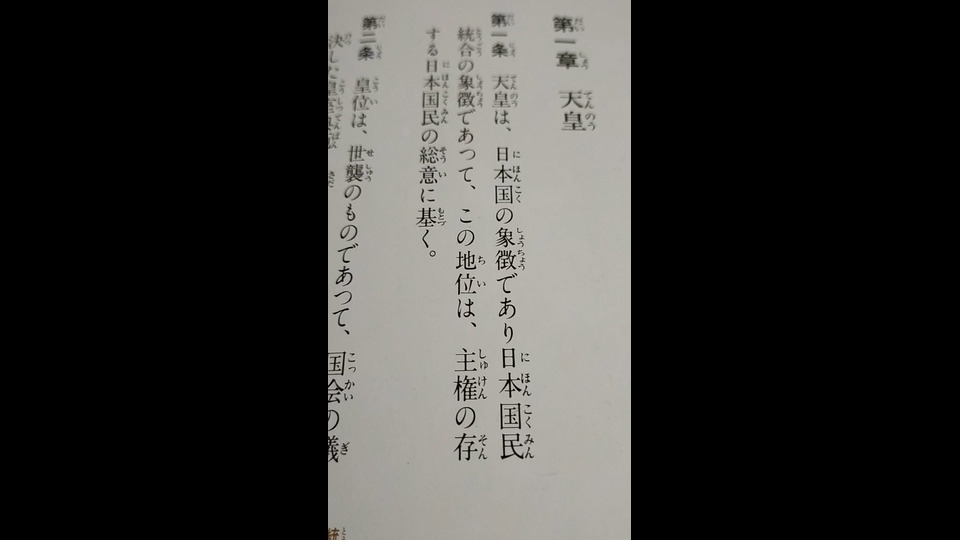 第一章　天皇
第一条　天皇は、日本国の象徴であり日本国民
統合の象徴であつて、この地位は、主権の存
する日本国民の総意に基く。
第二条　皇位は、世襲のものであつて、国会の議
決した皇室典範
統